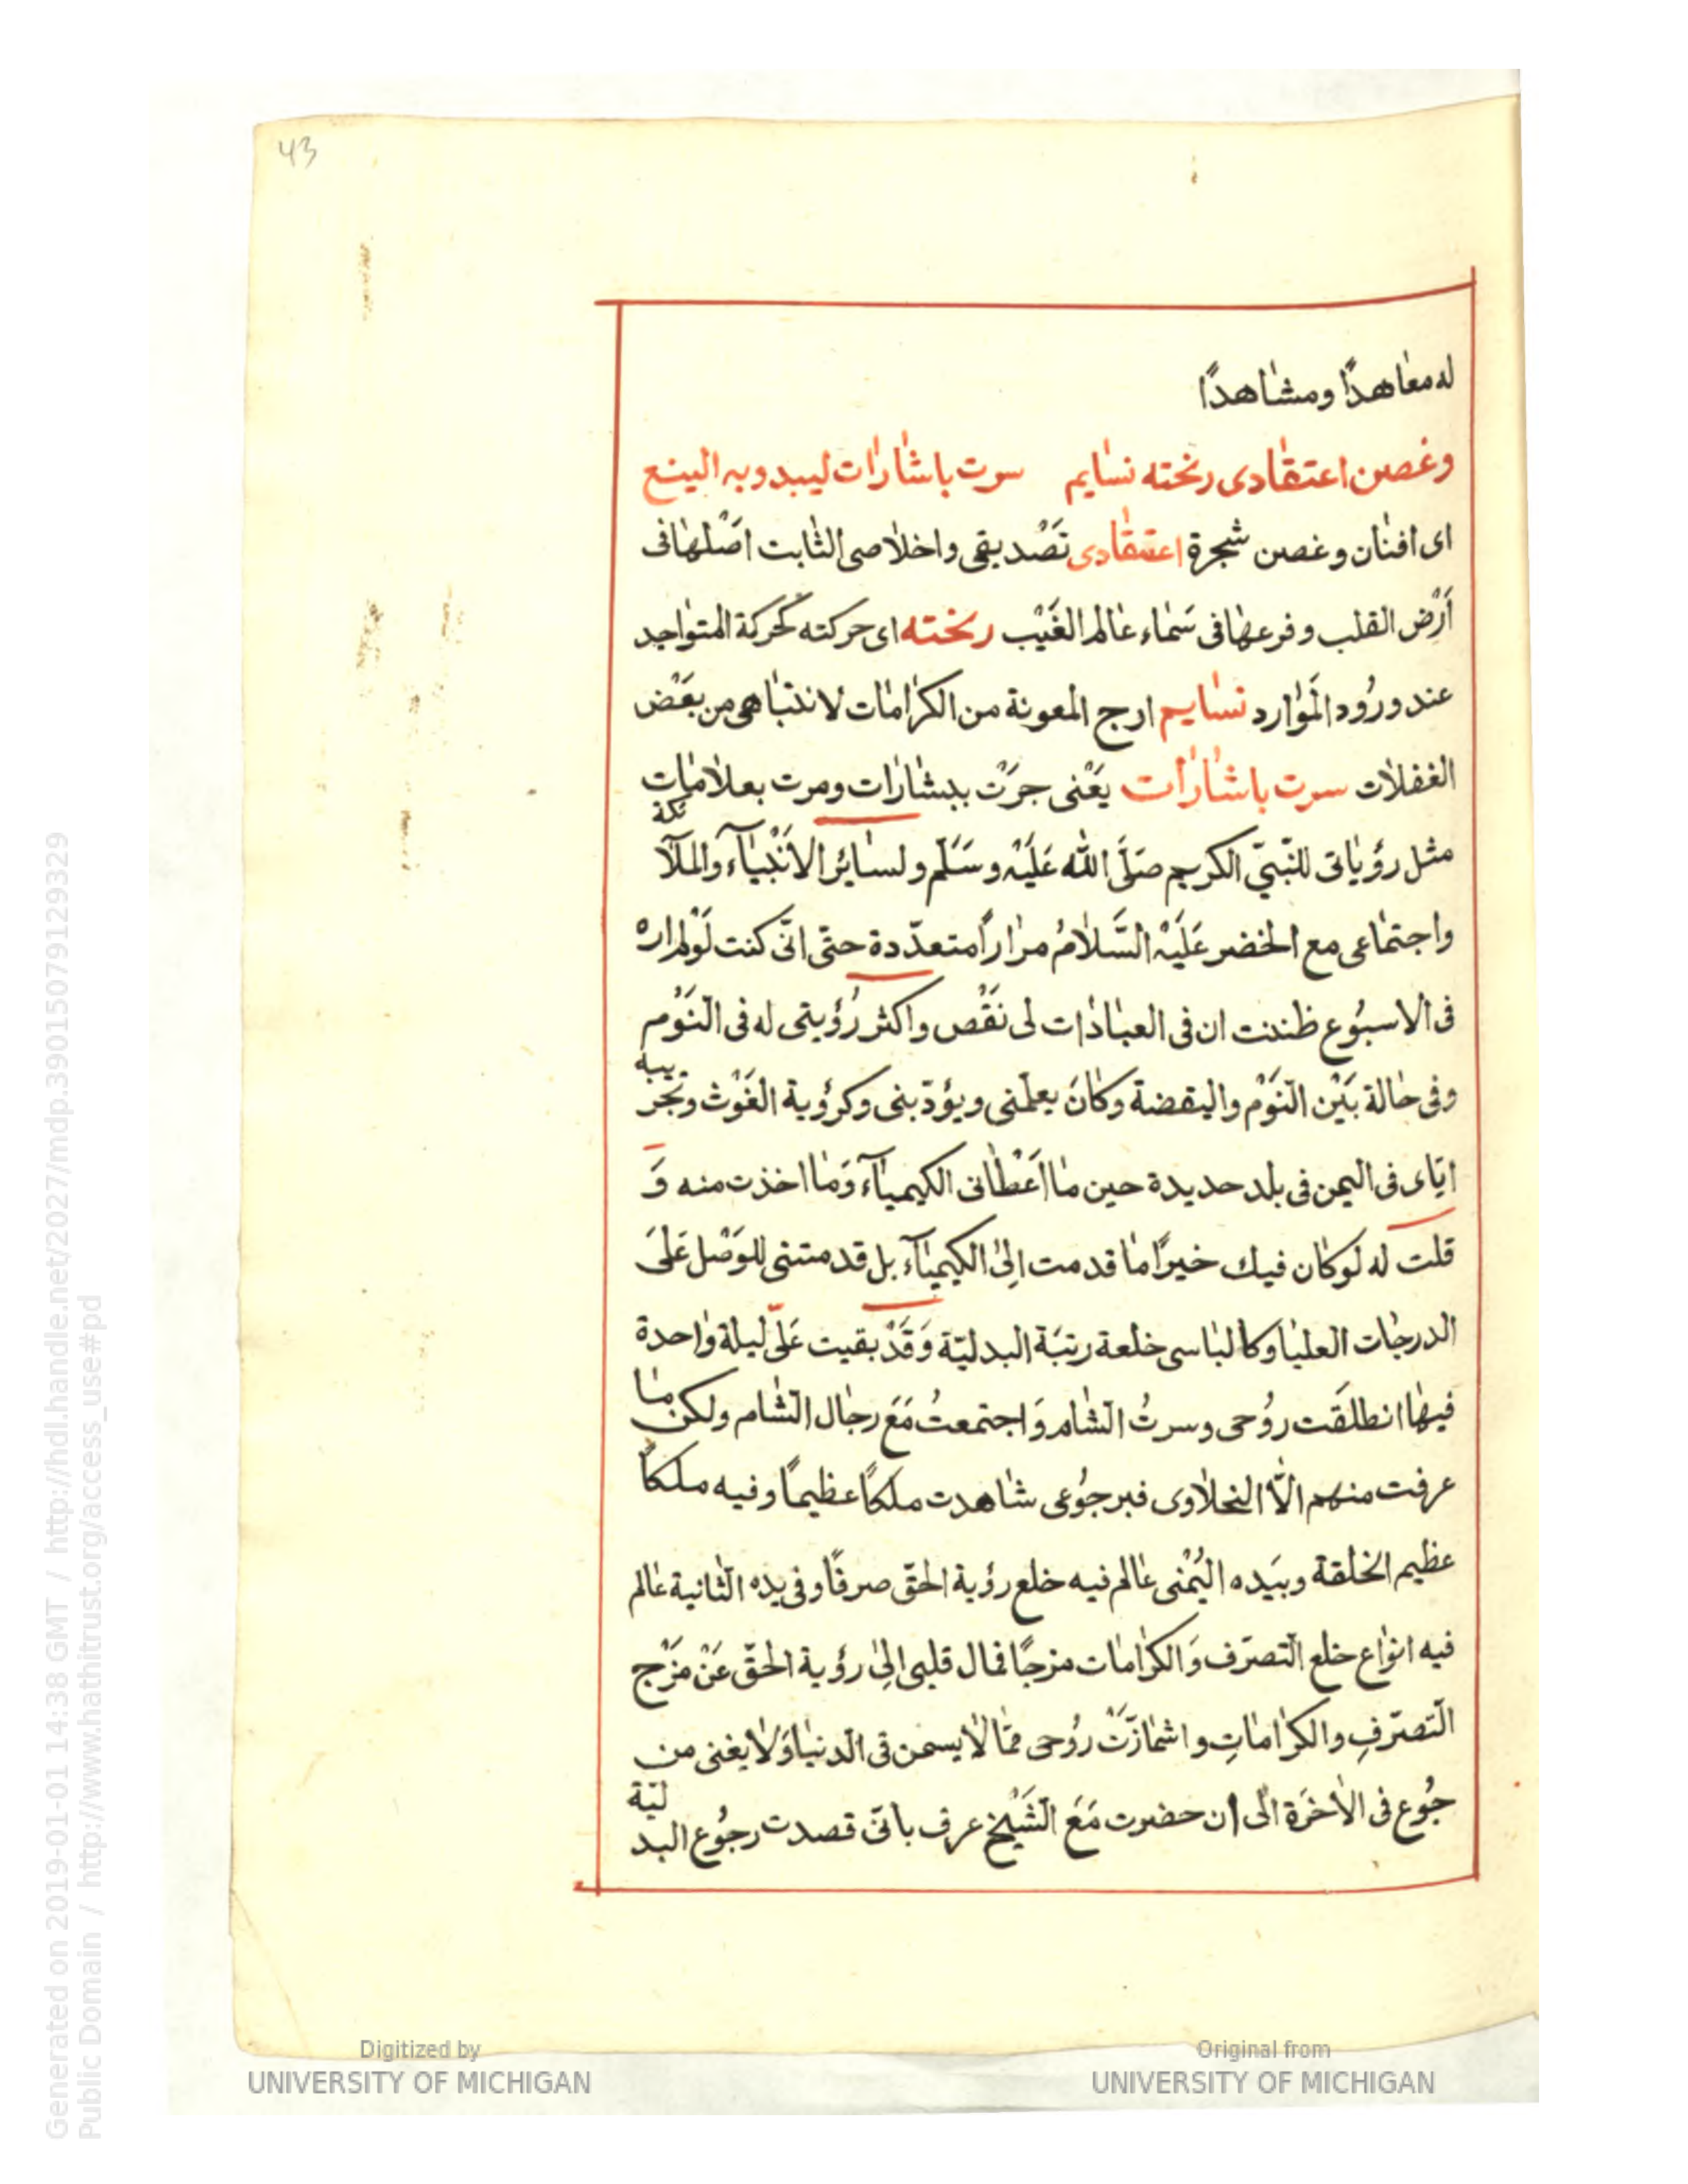 43
له معاهدًا ومشاهدًا
وغصن اعتقادى رنحته نسايم سرت باشارات ليبدو به الينع
اى افنان وغصن شجرة اعتقادى تَصْديقى واخلاصى الثابت اصْلها فى
أرْض القلب وفرعها فى سَماء عالم الغَيْب رنحته اى حركته كحركة المتواجد
عند ورُود الموَارد نسايم ارج المعونة من الكرامات لانتباهى من بعَض
الغفلات سرت باشارات يَعْنى جرَتْ ببشارات ومرت بعلامات
مثل رؤياتى للنّبىّ الكريم صَلَّى الله عَليَْه وسَلّم ولسائر الأنْبيَآء والملآئكة
واجتماعى مع الخضر عَليَْه السَّلامُ مرارًا متعدّدة حتّى انّى كنت لَوْلم اراه
فى الاسبُوع ظننت ان فى العبادات لى نَقْص واكثر رُؤيتى له فى النَوْم
وفى حالة بَيْن النَوْم واليقضة وكانَ يعلّمنى ويؤدّبنى وكرؤية الغَوْث وتجريبه
ايّاى فى اليمن فى بلد حديدة حين ما اعَْطانى الكيميَآء وَما اخذت منه وَ
قلت له لوكان فيك خيرًا ما قدمت اِلىٰ الكيميَآء بل قدمتنى للوَصْل عَلىَ
الدرجات العليا وكالباسى خلعة رتبَة البدليّة وَقَدْ بقيت عَلىّ ليلة واحدة
فيها انطلقَت رُوُحى وسرتُ الشام وَاجتمعتُ مَعَ رجال الشام ولكن ما
عرفت منهم الّا النحلاوى فبرجوُعى شاهدت ملكًا عظيمًا وفيه ملكًا
عظيم الخلقة وبيَده اليُمْنى عالم فيه خلع رؤية الحقّ صرفًا وفى يده الثانية عالم
فيه انواع خلع التصرّف وَالكرامات مزجًا فمال قلبى اِلىٰ رؤية الحقّ عَنْ مَزْج
التّصرّفِ والكراماتِ واشمازّتْ رُوُحى ممّا لا يسمن فى الدنيا وَلا يغنى من
جُوُع فى الاخرَة الى ان حضرت مَعَ الشَيْخ عرف بانّى قصدت رجُوُع البدليّة
Digitized by
UNIVERSITY OF MICHIGAN
Original from
UNIVERSITY OF MICHIGAN
Generated on 2019-01-01 14:38 GMT / http://hdl.handle.net/2027/mdp.39015079129329
Public Domain / http://www.hathitrust.org/access_use#pd